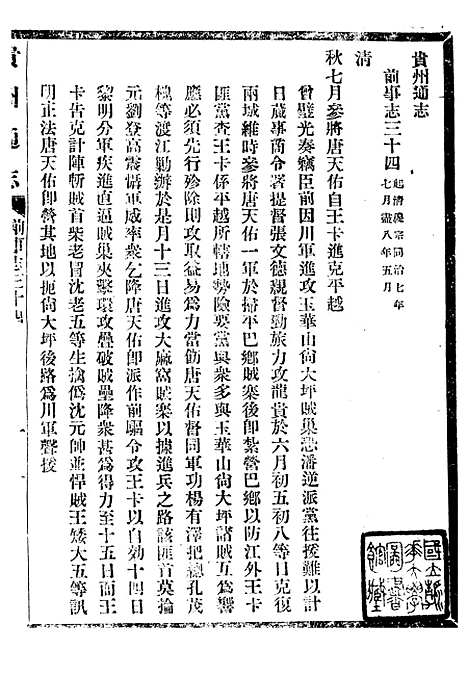 貴州通志
前事志三十四 起清穆宗同治七年七月盡八年五月
清
秋七月參將唐天佑自王卡進克平越
曾璧光奏竊臣前因川軍進攻玉華山尙大坪賊巢恐潘逆派黨往援難以計
日蕆事商令署提督張文德親督勁旅力攻龍貴於六月初五初八等日克復
兩城維時參將唐天佑一軍於掃平巴鄉賊寨後卽紮營巴鄉以防江外王卡
匪黨查王卡係平越所轄地勢險要黨與衆多與玉華山尙大坪諸賊互爲響
應必須先行殄除則攻取益易爲力當飭唐天佑督同軍功楊有澤把總孔茂
極等渡江勦辦於是月十三日進攻大麻窩賊寨以據進兵之路該匪首莫掄
元劉登高震懾軍威率衆乞降唐天佑卽派作前驅令攻王卡以自効十四日
黎明分軍疾進直逼賊巢夾擊環攻疊破賊壘降衆甚爲得力至十五日而王
卡告克計陣斬賊首柴老冒沈老五等生擒僞沈元帥並悍賊王矮大五等訊
明正法唐天佑卽營其地以扼尙大坪後路爲川軍聲援
貴州通志
前事志三十四